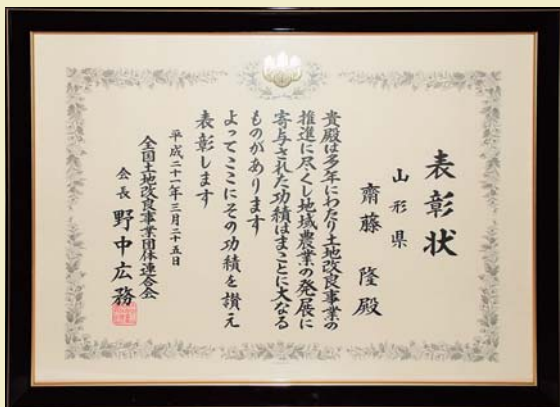 表彰状
山形県
齋藤 隆殿
貴殿は多年にわたり土地改良事業の
推進に尽くし地域農業の発展に
寄与された功績はまことに大なる
ものがあります
よってここにその功績を讃え
表彰します
平成二十一年三月二十五日
全国土地改良事業団体連合会
会長 野中広務